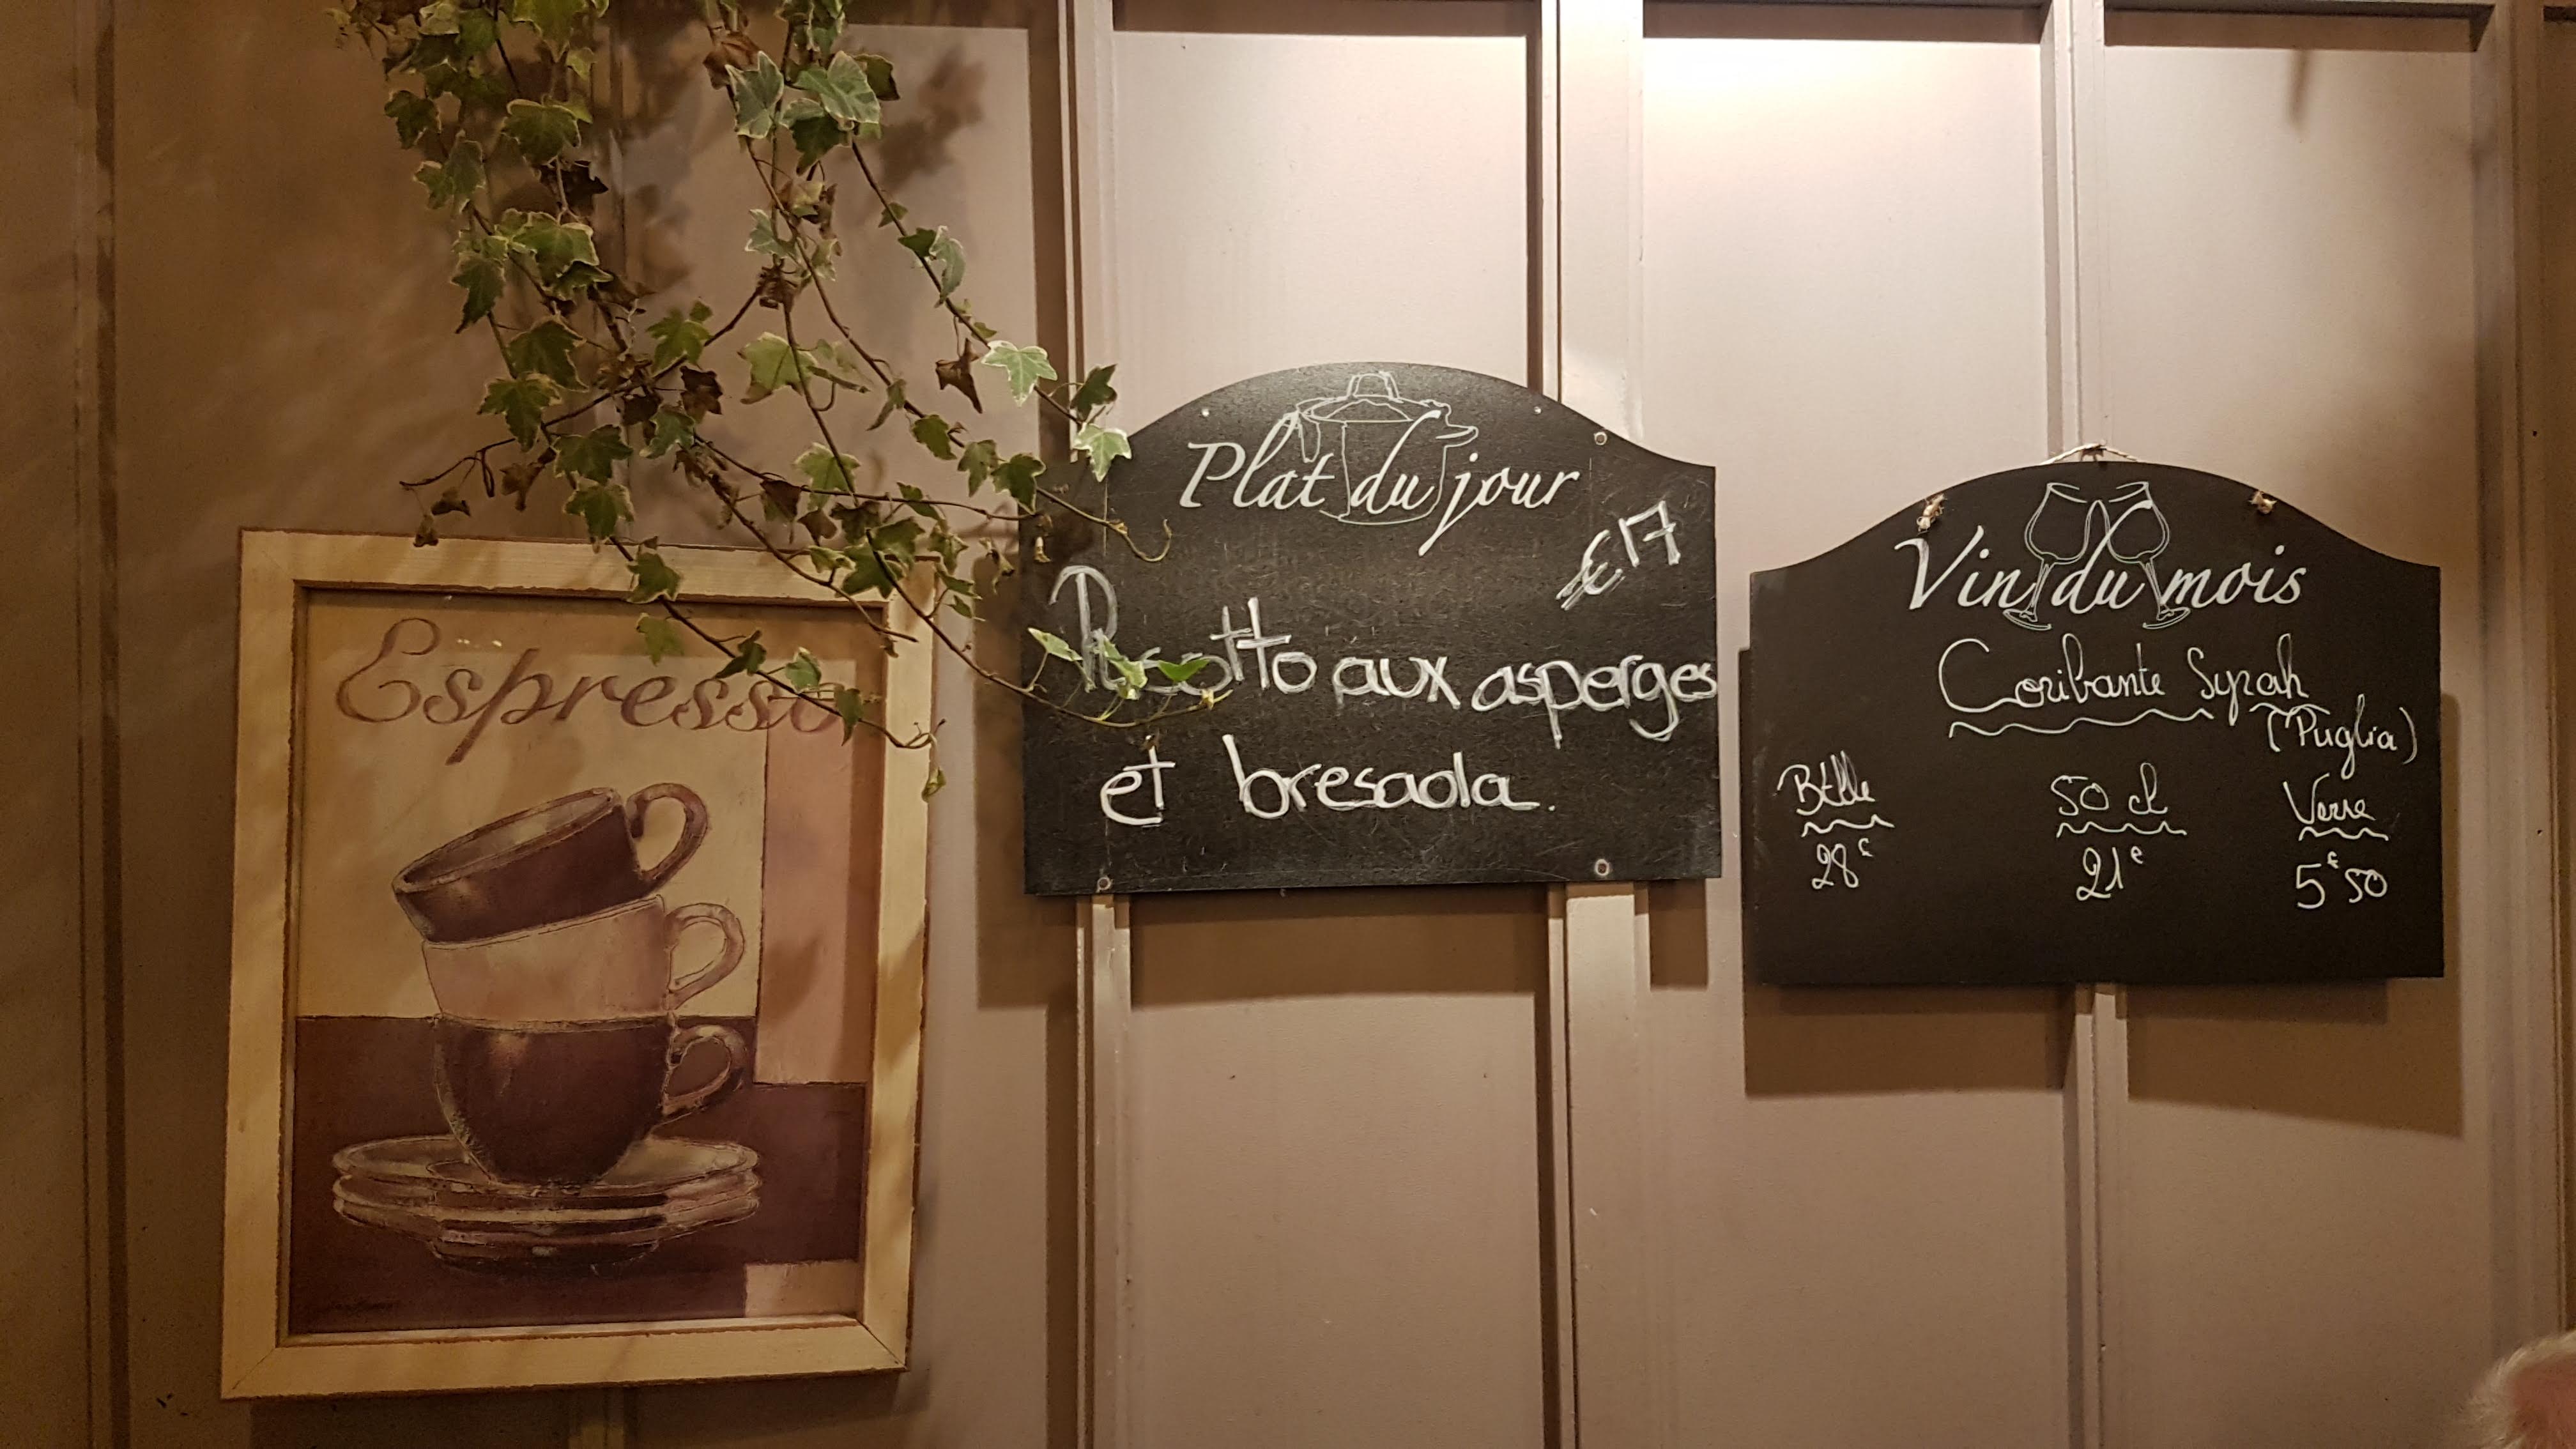 Espresso
Plat du jour
€17
Risotto aux asperges
et bresaola.
Vin du mois
Coribante Syrah
(Puglia)
Btlle 50 cl Verre
28€ 21€ 5€50